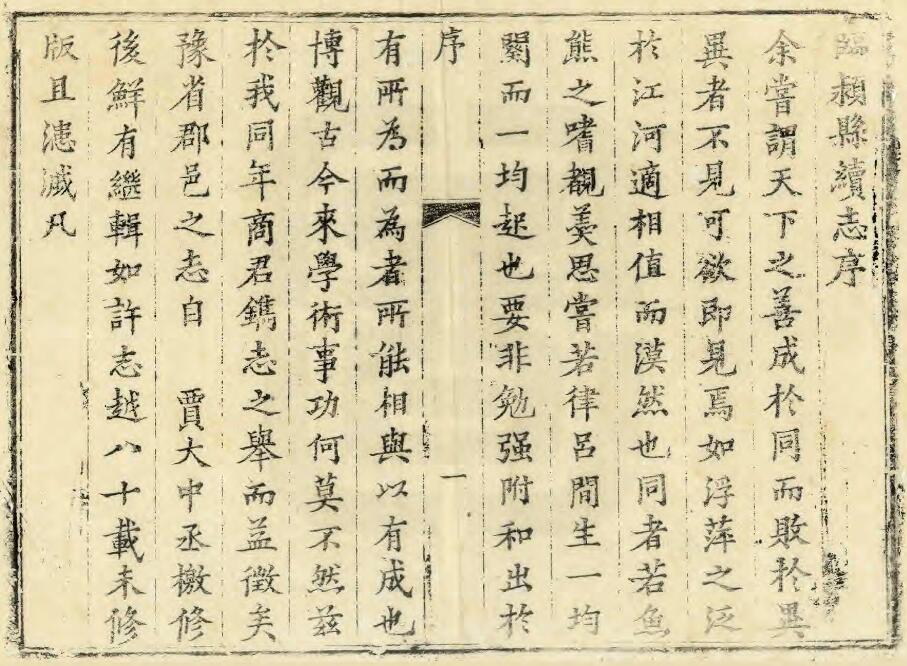 臨潁縣續志序
余嘗謂天下之善成於同而敗於異
異者不見可欲即見焉如浮萍之泛
於江河適相值而漠然也同者若魚
熊之嗜覩羹思嘗若律呂間生一均
闋而一均起也要非勉强附和出於
序 一
有所為而為者所能相與以有成也
博觀古今來學術事功何莫不然兹
於我同年商君鐫志之舉而益徵矣
豫省郡邑之志自 賈大中丞檄修
後鮮有繼輯如許志越八十載未修
版且漶滅凡